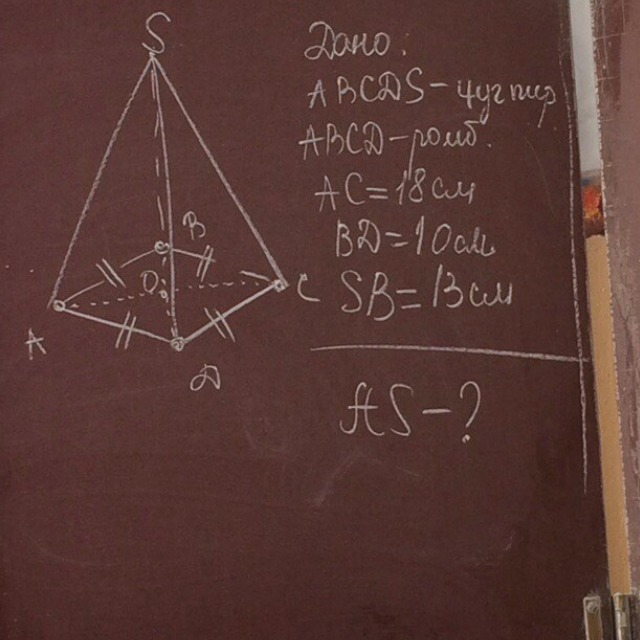 S
B
O
C
A
D
Дано:
ABCDS – чуг пир
ABCD – ромб.
AC = 18 см
BD = 10 см
SB = 13 см
AS – ?